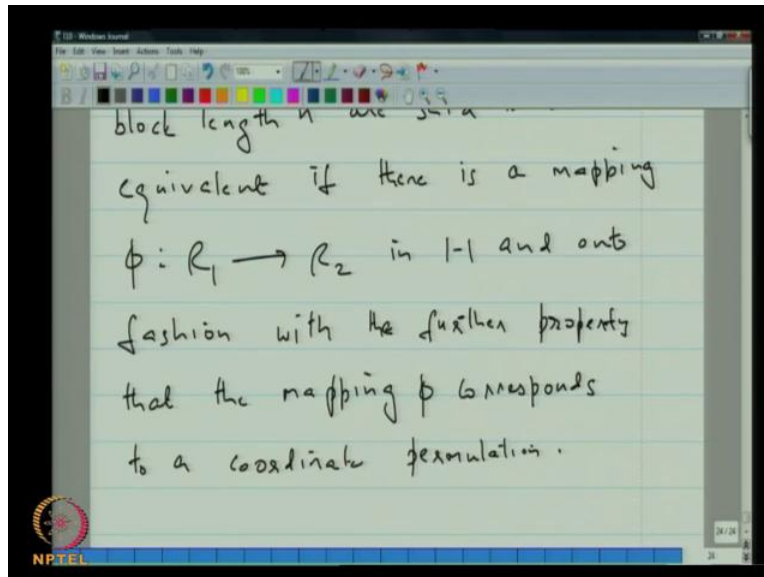 110 - Windows Journal
File Edit View Insert Actions Tools Help
100%
B I
block length n are said
equivalent if there is a mapping
ϕ : C₁ ⟶ C₂ in 1-1 and onto
fashion with the further property
that the mapping ϕ corresponds
to a coordinate permutation.
24/24
24
NPTEL